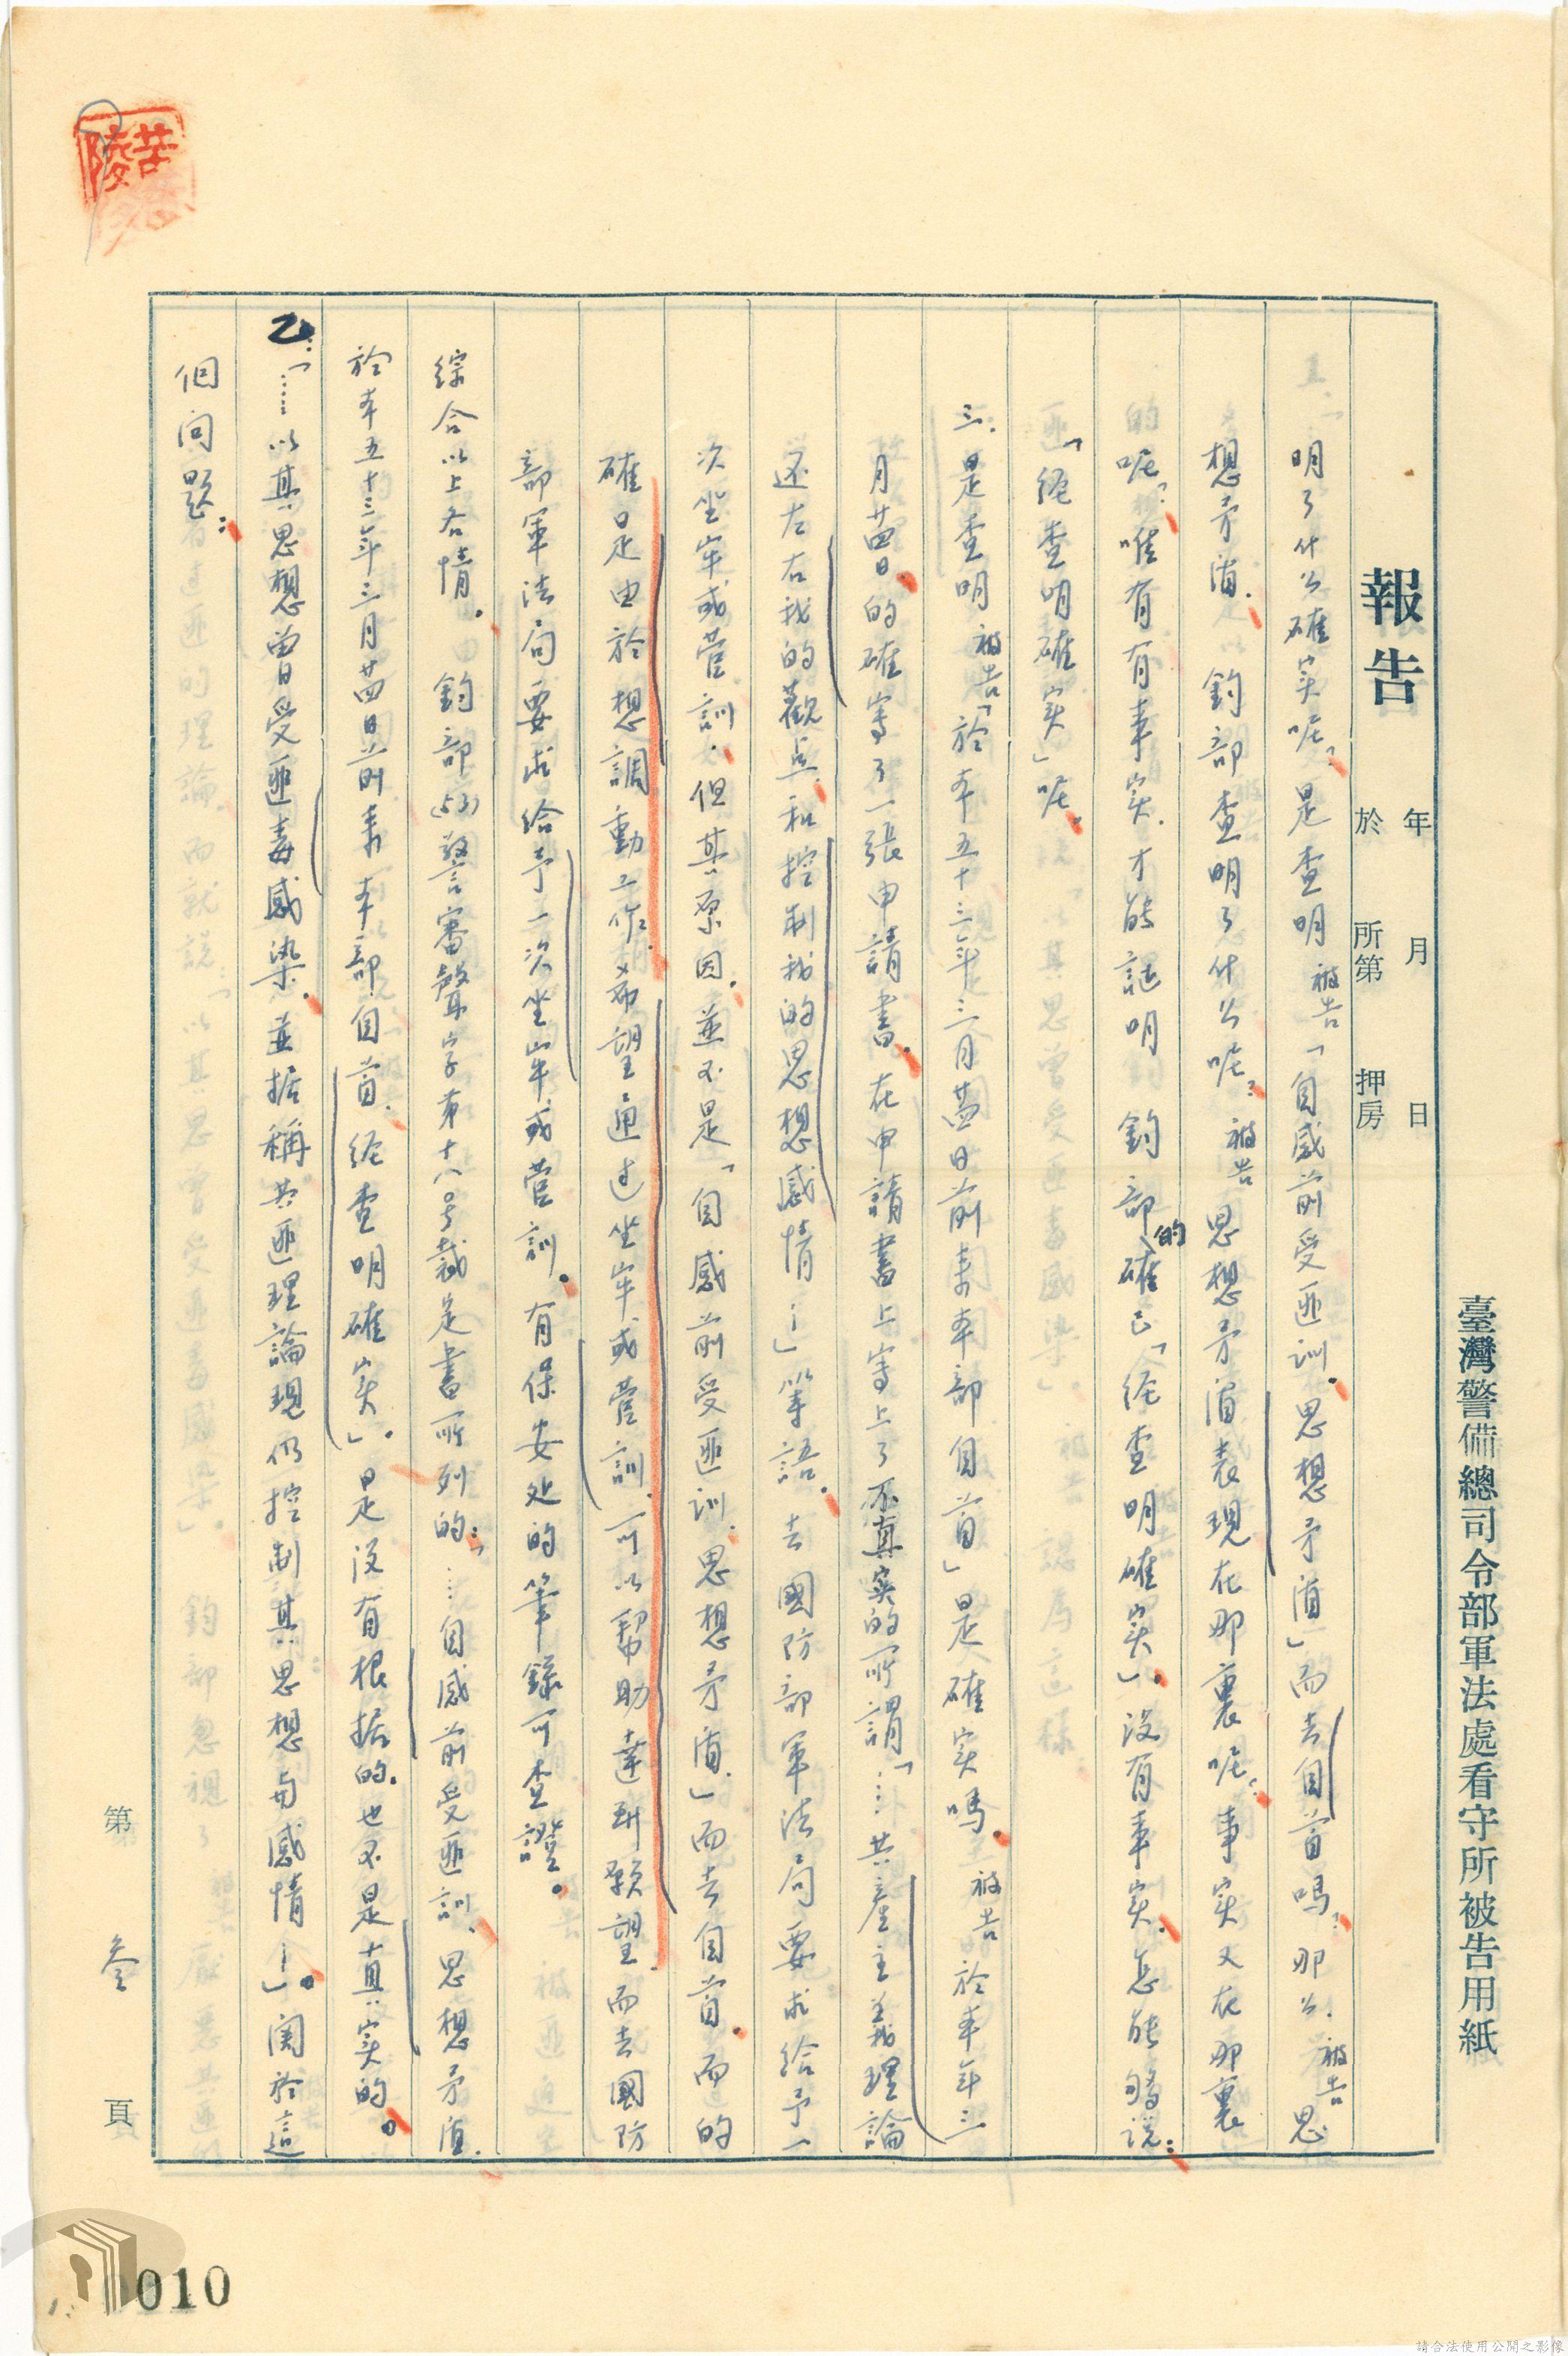 臺灣警備總司令部軍法處看守所被告用紙
報告
年 月 日
於 所第 押房
明了什么確实呢?是查明被告「自感前受匪訓.思想矛盾」而去自首嗎?那么.被告思
想矛盾.鈞部查明了什么呢?被告思想矛盾表現在那裏呢?事实又在那裏
的呢?唯有有事実.才能証明 鈞部的確已「経查明確実」。没有事実.怎能够説:
「経查明確実」呢。
三.是查明被告「於本五十三年三月廿四日前来本部自首」是確実嗎。被告於本年三
月廿四日.的確写了一張申請書.在申請書上写上了不真実的所謂「…共産主義理論
还左右我的觀点.和控制我的思想感情…」等語.去國防部軍法局要求給予一
次坐牢或管訓.但其原因.並不是「自感前受匪训.思想矛盾.」而去自首.而的
確是由於想調動工作.希望通过坐牢或管訓.可以幫助達到願望而去國防
部軍法局要求給予一次坐牢或管訓.有保安处的筆録可查證。
綜合以上各情.鈞部(53)警審聲字第十八号裁定書所列的:「…自感前受匪訓、思想矛盾.
於本五十三年三月廿四日前来本部自首.経查明確实」。是没有根据的.也不是真実的。
乙:「……以其思想曾受匪毒感染.並据稱共匪理論現仍控制其思想与感情…」。関於這
個问题:
第 叁 頁
010
請合法使用公開之影像